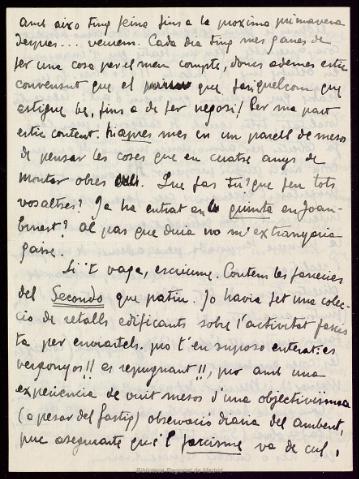 amb aixo tinc feina fins a la proxima primavera
despres... veurem. Cada dia tinc mes ganes de
fer una cosa per el meu compte, doncs ademes estic
convensut que el que fariquelcom que
estigue be, fins a de fer negosi! Per ma part
estic content. hiapres mes en un parell de mesos
de pensar les coses que en cuatre anys de
montar obres. Que fas tu? que feu tots
vosaltres? Ja ha entrat an la quinta en Joan-
brunet? al pas que duia no m'extranyaria
gaire.
Si't vaga, escriume. Contem les facecies
del Secondo que patiu. Jo havia fet una colec-
cio de retalls edificants sobre l'activitat faxis
ta per enviartels. pro t'en suposo enterat: es
vergonyos!! es repugnant!!, pro amb una
experiencia de vuit mesos d'una objectivissima
(a pesar del fastig) observacio diaria del ambent,
puc asegurarte que'l farcisme va de cul,
Biblioteca Regional de Madrid